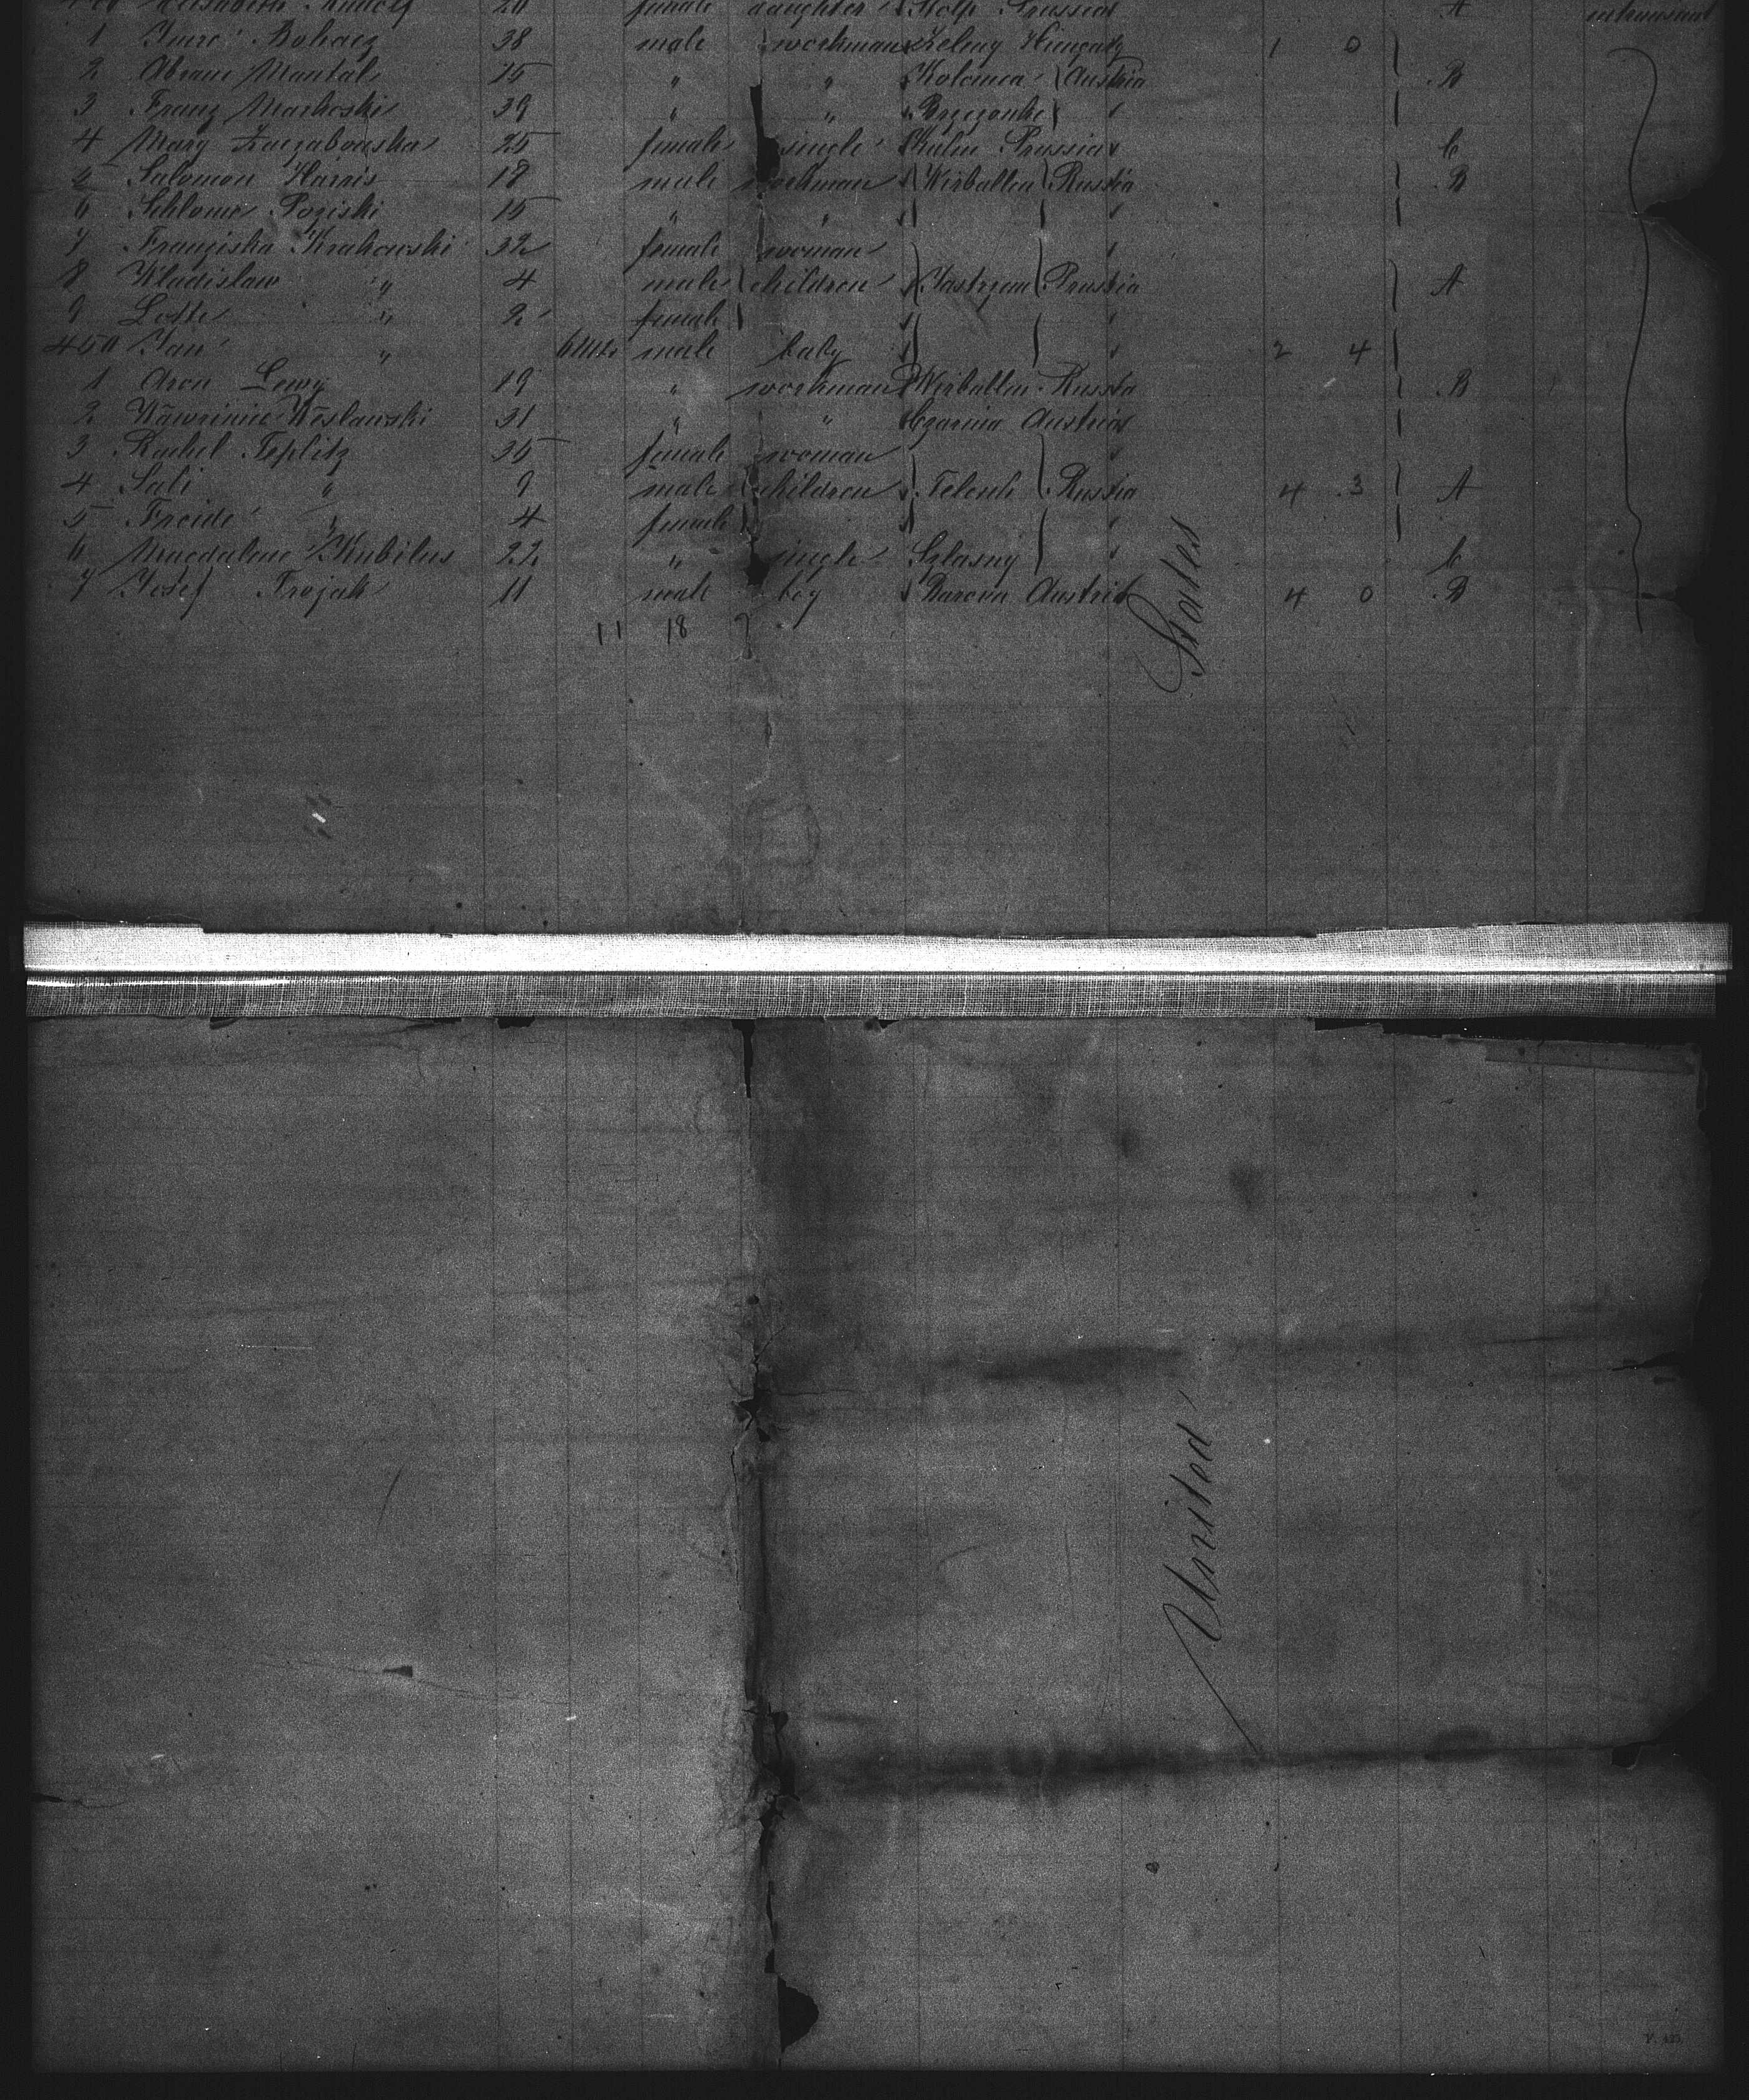 Elisabeth Rudolf 20 female daughter Stolp Prussia A
1 Imre Bohacz 38 male workman Zeleny Hungary 1 0
2 Abram Mantal 15 " " Kolomea Austria B
3 Franz Markoski 39 " "
4 Mary 25 female single Kulm Prussia C
5 Salomon Harris 18 male workman Wirballen Russia B
6 Schlome Poziski 15 " "
7 Franziska Krakowski 32 female woman
8 Wladislaw " 4 male children Jastrzem Prussia A
9 Lotte " 2 female
450 Jan " 6 Mts male baby 2 4
1 Aron Lewy 19 " workman Wirballen Russia B
2 31 " " Czarnia Austria
3 Rachel Teplitz 35 female woman
4 Sali " 9 male children Telesch Russia 4 3 A
5 Freide " 4 female
6 Magdalene Kubilus 22 " single Szlasny C
7 Josef Trojak 11 male boy Austria 4 0 B
11 18 7
States
United